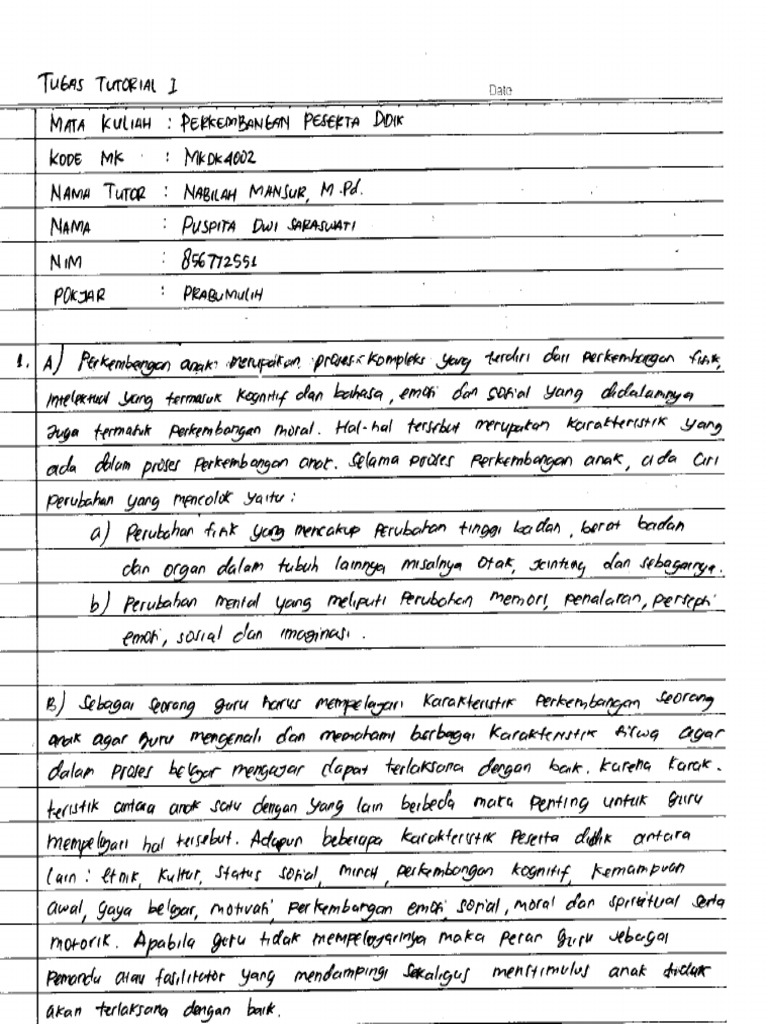 TUGAS TUTORIAL I
Date
MATA KULIAH : PERKEMBANGAN PESERTA DIDIK
KODE MK : MKDK4002
NAMA TUTOR : NABILAH MANSUR, M.Pd.
NAMA : PUSPITA DWI SARASWATI
NIM : 856772551
POKJAR : PRABUMULIH
1. A) Perkembangan anak merupakan proses kompleks yang terdiri dari perkembangan fisik,
intelektual yang termasuk kognitif dan bahasa, emosi dan sosial yang didalamnya
juga termasuk perkembangan moral. Hal-hal tersebut merupakan karakteristik yang
ada dalam proses perkembangan anak. Selama proses perkembangan anak, ada ciri
perubahan yang mencolok yaitu :
a) Perubahan fisik yang mencakup perubahan tinggi badan, berat badan
dan organ dalam tubuh lainnya misalnya otak, jantung dan sebagainya.
b) Perubahan mental yang meliputi perubahan memori, penalaran, persepsi
emosi, sosial dan imaginasi.
B) Sebagai seorang guru harus mempelajari karakteristik perkembangan seorang
anak agar guru mengenali dan memahami berbagai karakteristik siswa agar
dalam proses belajar mengajar dapat terlaksana dengan baik. Karena karak-
teristik antara anak satu dengan yang lain berbeda maka penting untuk guru
mempelajari hal tersebut. Adapun beberapa karakteristik peserta didik antara
lain : Etnik, kultur, status sosial, minat, perkembangan kognitif, kemampuan
awal, gaya belajar, motivasi, perkembangan emosi, sosial, moral dan spiritual serta
motorik. Apabila guru tidak mempelajarinya maka peran guru sebagai
pemandu atau fasilitator yang mendampingi sekaligus menstimulus anak tidak
akan terlaksana dengan baik.